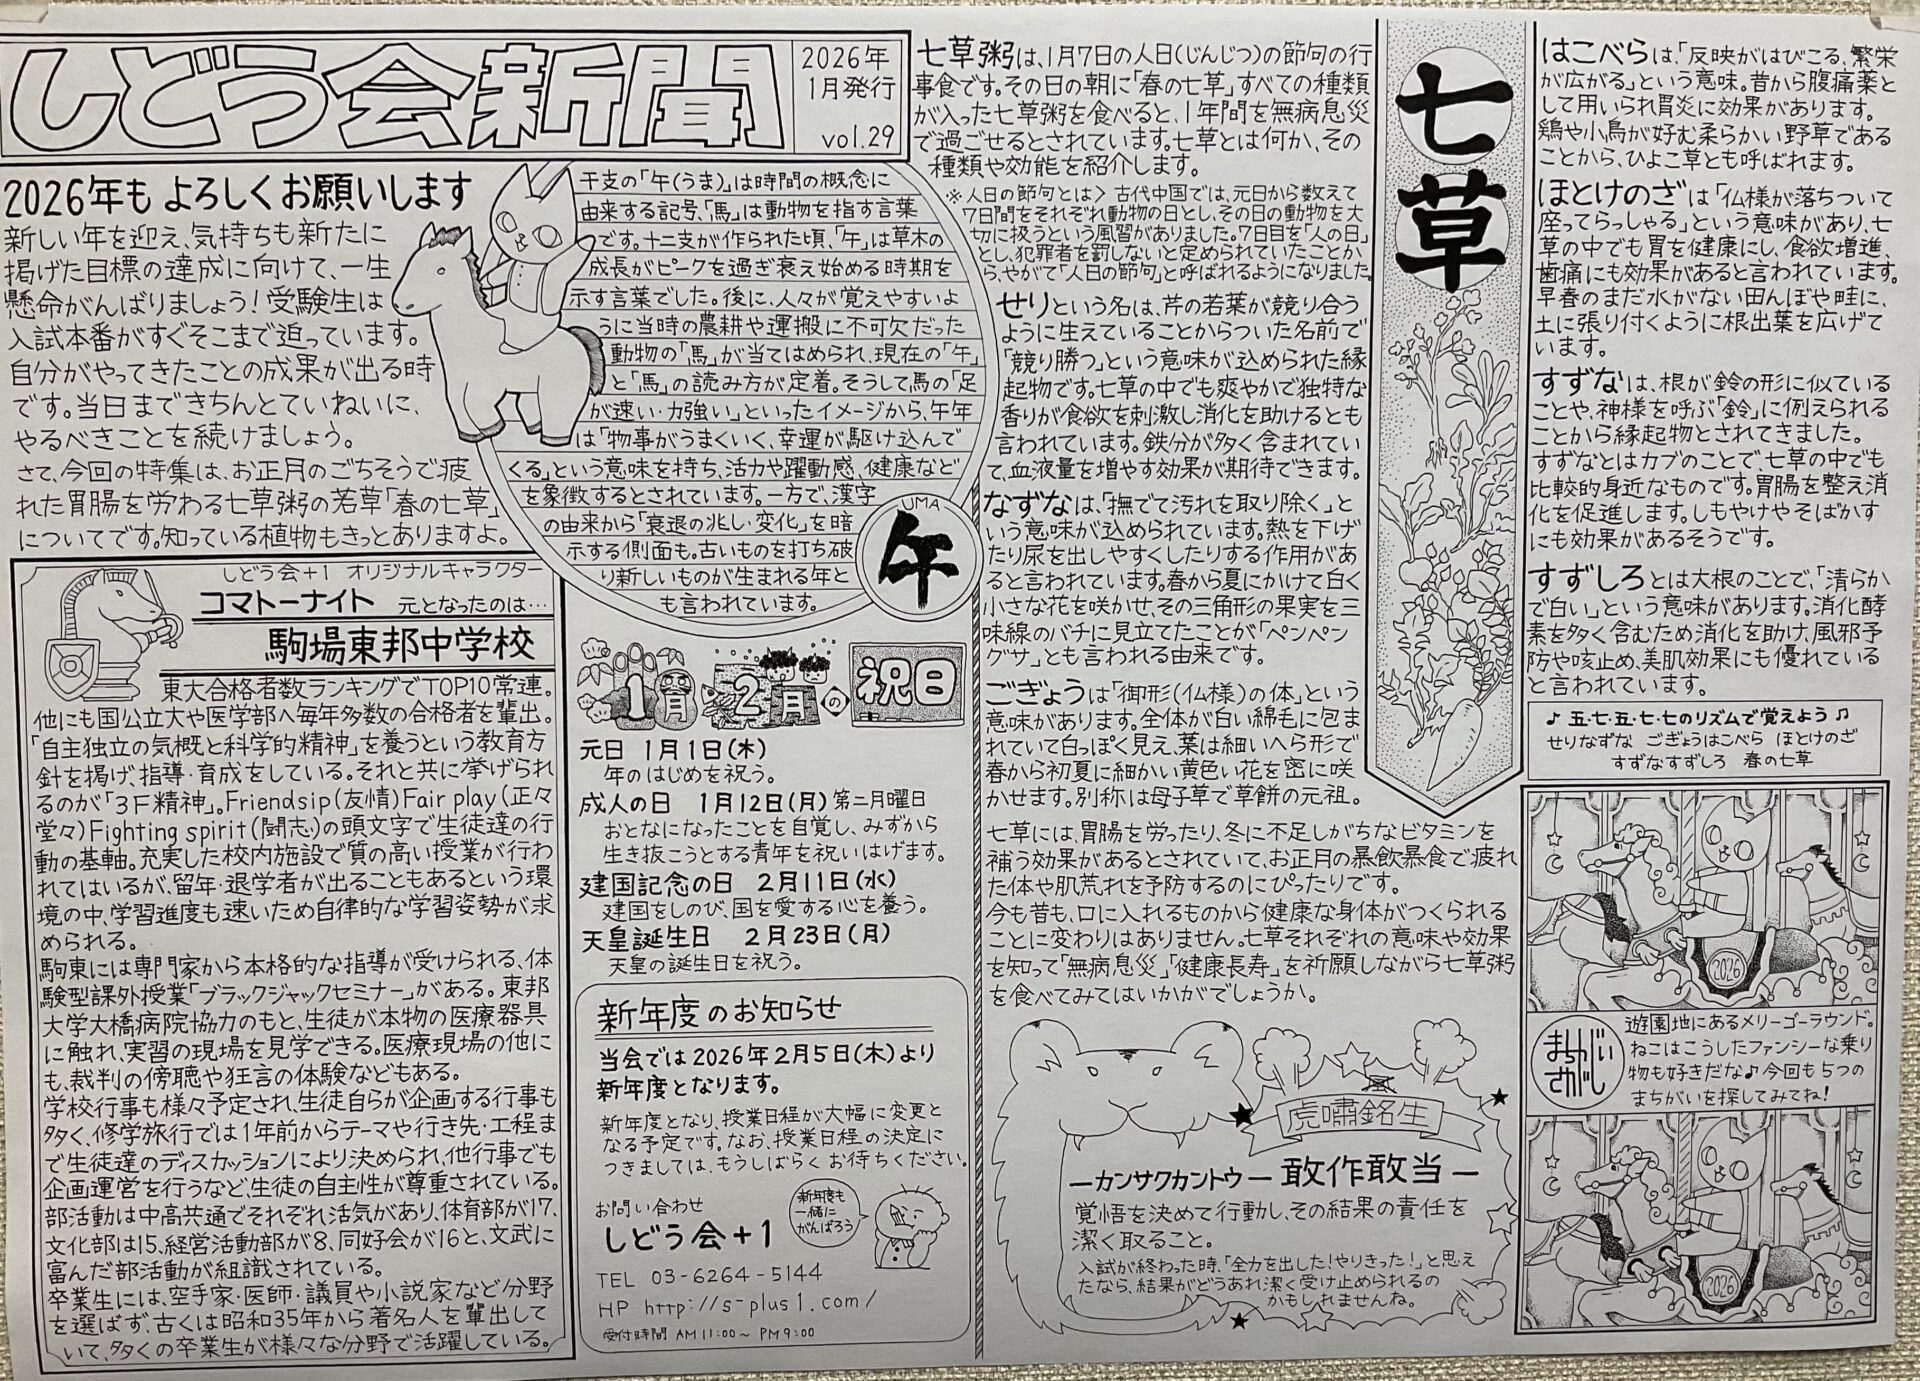 しどう会新聞
2026年
1月発行
vol.29
2026年も よろしくお願いします
新しい年を迎え、気持ちも新たに
掲げた目標の達成に向けて、一生
懸命がんばりましょう！受験生は
入試本番がすぐそこまで迫っています。
自分がやってきたことの成果が出る時
です。当日まできちんとていねいに、
やるべきことを続けましょう。
さて、今回の特集は、お正月のごちそうで疲
れた胃腸を労わる七草粥の若草「春の七草」
についてです。知っている植物もきっとありますよ。
干支の「午(うま)」は時間の概念に
由来する記号、「馬」は動物を指す言葉
です。十二支が作られた頃、「午」は草木の
成長がピークを過ぎ衰え始める時期を
示す言葉でした。後に、人々が覚えやすいよ
うに当時の農耕や運搬に不可欠だった
動物の「馬」が当てはめられ、現在の「午」
と「馬」の読み方が定着。そうして馬の「足
が速い・力強い」といったイメージから、午年
は「物事がうまくいく、幸運が駆け込んで
くる」という意味を持ち、活力や躍動感、健康など
を象徴するとされています。一方で、漢字
の由来から「衰退の兆し・変化」を暗
示する側面も。古いものを打ち破
り新しいものが生まれる年と
も言われています。
UMA
午
しどう会+1 オリジナルキャラクター
コマトーナイト 元となったのは…
駒場東邦中学校
東大合格者数ランキングでTOP10常連。
他にも国公立大や医学部へ毎年多数の合格者を輩出。
「自主独立の気概と科学的精神」を養うという教育方
針を掲げ、指導・育成をしている。それと共に挙げられ
るのが「3F精神」。Friendsip(友情)Fair play(正々
堂々)Fighting spirit(闘志)の頭文字で生徒達の行
動の基軸。充実した校内施設で質の高い授業が行わ
れてはいるが、留年・退学者が出ることもあるという環
境の中、学習進度も速いため自律的な学習姿勢が求
められる。
駒東には専門家から本格的な指導が受けられる、体
験型課外授業「ブラックジャックセミナー」がある。東邦
大学大橋病院協力のもと、生徒が本物の医療器具
に触れ、実習の現場を見学できる。医療現場の他に
も、裁判の傍聴や狂言の体験などもある。
学校行事も様々予定され、生徒自らが企画する行事も
多く、修学旅行では1年前からテーマや行き先・工程ま
で生徒達のディスカッションにより決められ、他行事でも
企画運営を行うなど、生徒の自主性が尊重されている。
部活動は中高共通でそれぞれ活気があり、体育部が17、
文化部は15、経営活動部が8、同好会が16と、文武に
富んだ部活動が組識されている。
卒業生には、空手家・医師・議員や小説家など分野
を選ばず、古くは昭和35年から著名人を輩出して
いて、多くの卒業生が様々な分野で活躍している。
1月2月の祝日
元日 1月1日(木)
年のはじめを祝う。
成人の日 1月12日(月) 第二月曜日
おとなになったことを自覚し、みずから
生き抜こうとする青年を祝いはげます。
建国記念の日 2月11日(水)
建国をしのび、国を愛する心を養う。
天皇誕生日 2月23日(月)
天皇の誕生日を祝う。
新年度のお知らせ
当会では2026年2月5日(木)より
新年度となります。
新年度となり、授業日程が大幅に変更と
なる予定です。なお、授業日程の決定に
つきましては、もうしばらくお待ちください。
お問い合わせ
しどう会+1
TEL 03-6264-5144
HP http://s-plus1.com/
受付時間 AM11:00～PM9:00
新年度も
一緒に
がんばろう
七草粥は、1月7日の人日(じんじつ)の節句の行
事食です。その日の朝に「春の七草」すべての種類
が入った七草粥を食べると、1年間を無病息災
で過ごせるとされています。七草とは何か、その
種類や効能を紹介します。
※人日の節句とは＞古代中国では、元日から数えて
7日間をそれぞれ動物の日とし、その日の動物を大
切に扱うという風習がありました。7日目を「人の日」
とし、犯罪者を罰しないと定められていたことか
ら、やがて「人日の節句」と呼ばれるようになりました。
せりという名は、芹の若葉が競り合う
ように生えていることからついた名前で
「競り勝つ」という意味が込められた縁
起物です。七草の中でも爽やかで独特な
香りが食欲を刺激し消化を助けるとも
言われています。鉄分が多く含まれてい
て、血液量を増やす効果が期待できます。
なずなは、「撫でて汚れを取り除く」と
いう意味が込められています。熱を下げ
たり尿を出しやすくしたりする作用があ
ると言われています。春から夏にかけて白く
小さな花を咲かせ、その三角形の果実を三
味線のバチに見立てたことが「ペンペン
グサ」とも言われる由来です。
ごぎょうは「御形(仏様)の体」という
意味があります。全体が白い綿毛に包ま
れていて白っぽく見え、葉は細いへら形で
春から初夏に細かい黄色い花を密に咲
かせます。別称は母子草で草餅の元祖。
七草には、胃腸を労ったり、冬に不足しがちなビタミンを
補う効果があるとされていて、お正月の暴飲暴食で疲れ
た体や肌荒れを予防するのにぴったりです。
今も昔も、口に入れるものから健康な身体がつくられる
ことに変わりはありません。七草それぞれの意味や効果
を知って「無病息災」「健康長寿」を祈願しながら七草粥
を食べてみてはいかがでしょうか。
七草
はこべらは、「反映がはびこる、繁栄
が広がる」という意味。昔から腹痛薬と
して用いられ胃炎に効果があります。
鶏や小鳥が好む柔らかい野草である
ことから、ひよこ草とも呼ばれます。
ほとけのざは「仏様が落ちついて
座ってらっしゃる」という意味があり、七
草の中でも胃を健康にし、食欲増進、
歯痛にも効果があると言われています。
早春のまだ水がない田んぼや畦に、
土に張り付くように根出葉を広げて
います。
すずなは、根が鈴の形に似ている
ことや、神様を呼ぶ「鈴」に例えられる
ことから縁起物とされてきました。
すずなとはカブのことで、七草の中でも
比較的身近なものです。胃腸を整え消
化を促進します。しもやけやそばかす
にも効果があるそうです。
すずしろとは大根のことで、「清らか
で白い」という意味があります。消化酵
素を多く含むため消化を助け、風邪予
防や咳止め、美肌効果にも優れている
と言われています。
♪ 五・七・五・七・七のリズムで覚えよう ♫
せりなずな ごぎょうはこべら ほとけのざ
すずなすずしろ 春の七草
2026
まちがいさがし
遊園地にあるメリーゴーラウンド。
ねこはこうしたファンシーな乗り
物も好きだな♪今回も5つの
まちがいを探してみてね！
2026
虎嘯銘生
ーカンサクカントウー 敢作敢当ー
覚悟を決めて行動し、その結果の責任を
潔く取ること。
入試が終わった時、「全力を出した！やりきった！」と思え
たなら、結果がどうあれ潔く受け止められるの
かもしれませんね。